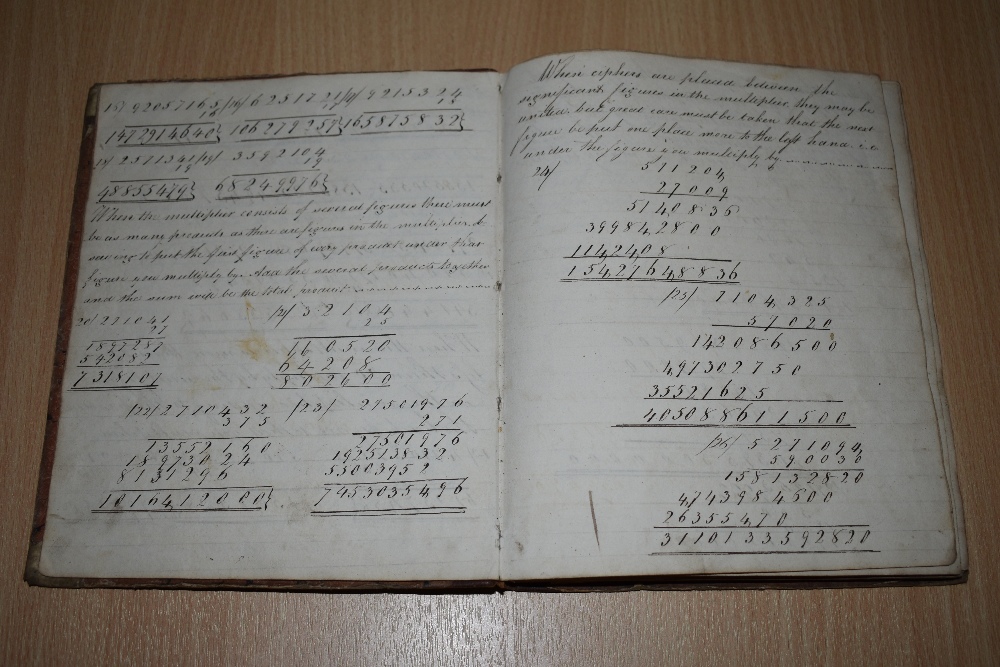 15/ 92057165/ 16/ 6251721/ 17/ 9215324
16 17 18
1472914640 106279257 165875832
18/ 2571341/ 19/ 3592104
19 19
48855479 68249976
When the multiplier consists of several figures there must
be as many products as there are figures in the multiplier, ob
serving to put the first figure of every product under that
figure you multiply by. Add the several products together
and the sum will be the total product
20/ 271041 21/ 32104
27 25
1897287 160520
542082 64208
7318107 802600
22/ 2710432 23/ 27501976
375 271
13552160 27501976
18973024 192513832
8131296 55003952
1016412000 7453035496
When ciphers are placed between the
significant figures in the multiplier, they may be
omitted but great care must be taken that the next
figure be put one place more to the left hand i.e
under the figure you multiply by
24/ 571204
27009
5140836
399842800
1142408
15427648836
25/ 7104325
57020
142086500
497302750
35521625
405088611500
26/ 5271094
590030
158132820
4743984600
26355470
3110133592820